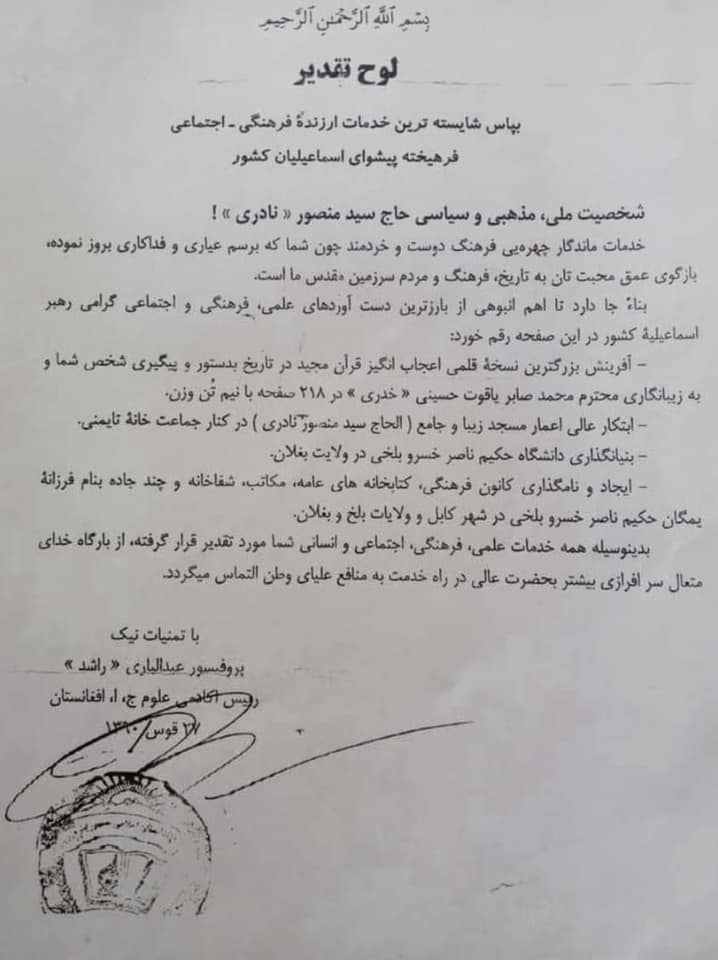 بِسْمِ اللَّهِ الرَّحْمَٰنِ الرَّحِيمِ
لوح تقدیر
بپاس شایسته ترین خدمات ارزندۀ فرهنگی ـ اجتماعی
فرهیخته پیشوای اسماعیلیان کشور
شخصیت ملی، مذهبی و سیاسی حاج سید منصور « نادری » !
خدمات ماندگار چهره‌یی فرهنگ دوست و خردمند چون شما که برسم عیاری و فداکاری بروز نموده،
بازگوی عمق محبت تان به تاریخ، فرهنگ و مردم سرزمین مقدس ما است.
بناءً جا دارد تا اهم انبوهی از بارزترین دست آوردهای علمی، فرهنگی و اجتماعی گرامی رهبر
اسماعیلیۀ کشور در این صفحه رقم خورد:
– آفرینش بزرگترین نسخۀ قلمی اعجاب انگیز قرآن مجید در تاریخ بدستور و پیگیری شخص شما و
به زیبانگاری محترم محمد صابر یاقوت حسینی « خدری » در ۲۱۸ صفحه با نیم تُن وزن.
– ابتکار عالی اعمار مسجد زیبا و جامع ( الحاج سید منصور نادری ) در کنار جماعت خانۀ تایمنی.
– بنیانگذاری دانشگاه حکیم ناصر خسرو بلخی در ولایت بغلان.
– ایجاد و نامگذاری کانون فرهنگی، کتابخانه های عامه، مکاتب، شفاخانه و چند جاده بنام فرزانۀ
یمگان حکیم ناصر خسرو بلخی در شهر کابل و ولایات بلخ و بغلان.
بدینوسیله همه خدمات علمی، فرهنگی، اجتماعی و انسانی شما مورد تقدیر قرار گرفته، از بارگاه خدای
متعال سر افرازی بیشتر بحضرت عالی در راه خدمت به منافع علیای وطن التماس میگردد.
با تمنیات نیک
پروفیسور عبدالباری « راشد »
رییس اکادمی علوم ج، ا، افغانستان
۲۷ قوس ۱۳۹۰